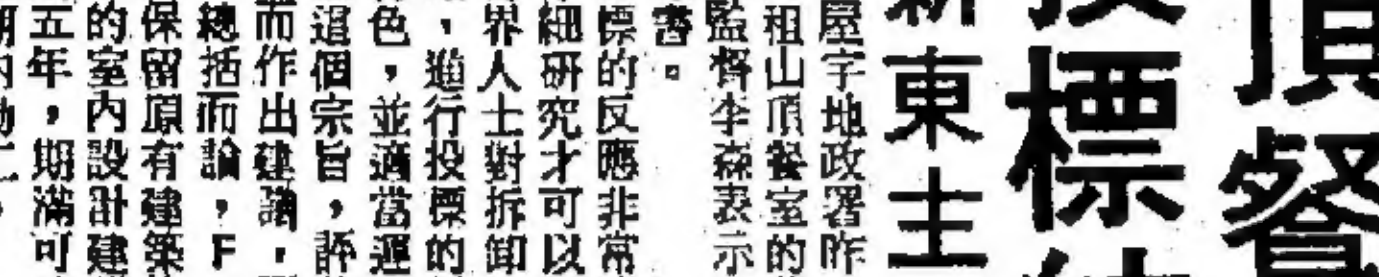 頂餐
投標
新東主
屋宇地政署昨
租山頂餐室的
監督李森表示
書。
標的反應非常
細研究才可以
界人士對拆卸
，進行投標的
色，並適當運
這個宗旨，評
而作出建議，
總括而論，F
保留原有建築
的室內設計建
五年，期滿可